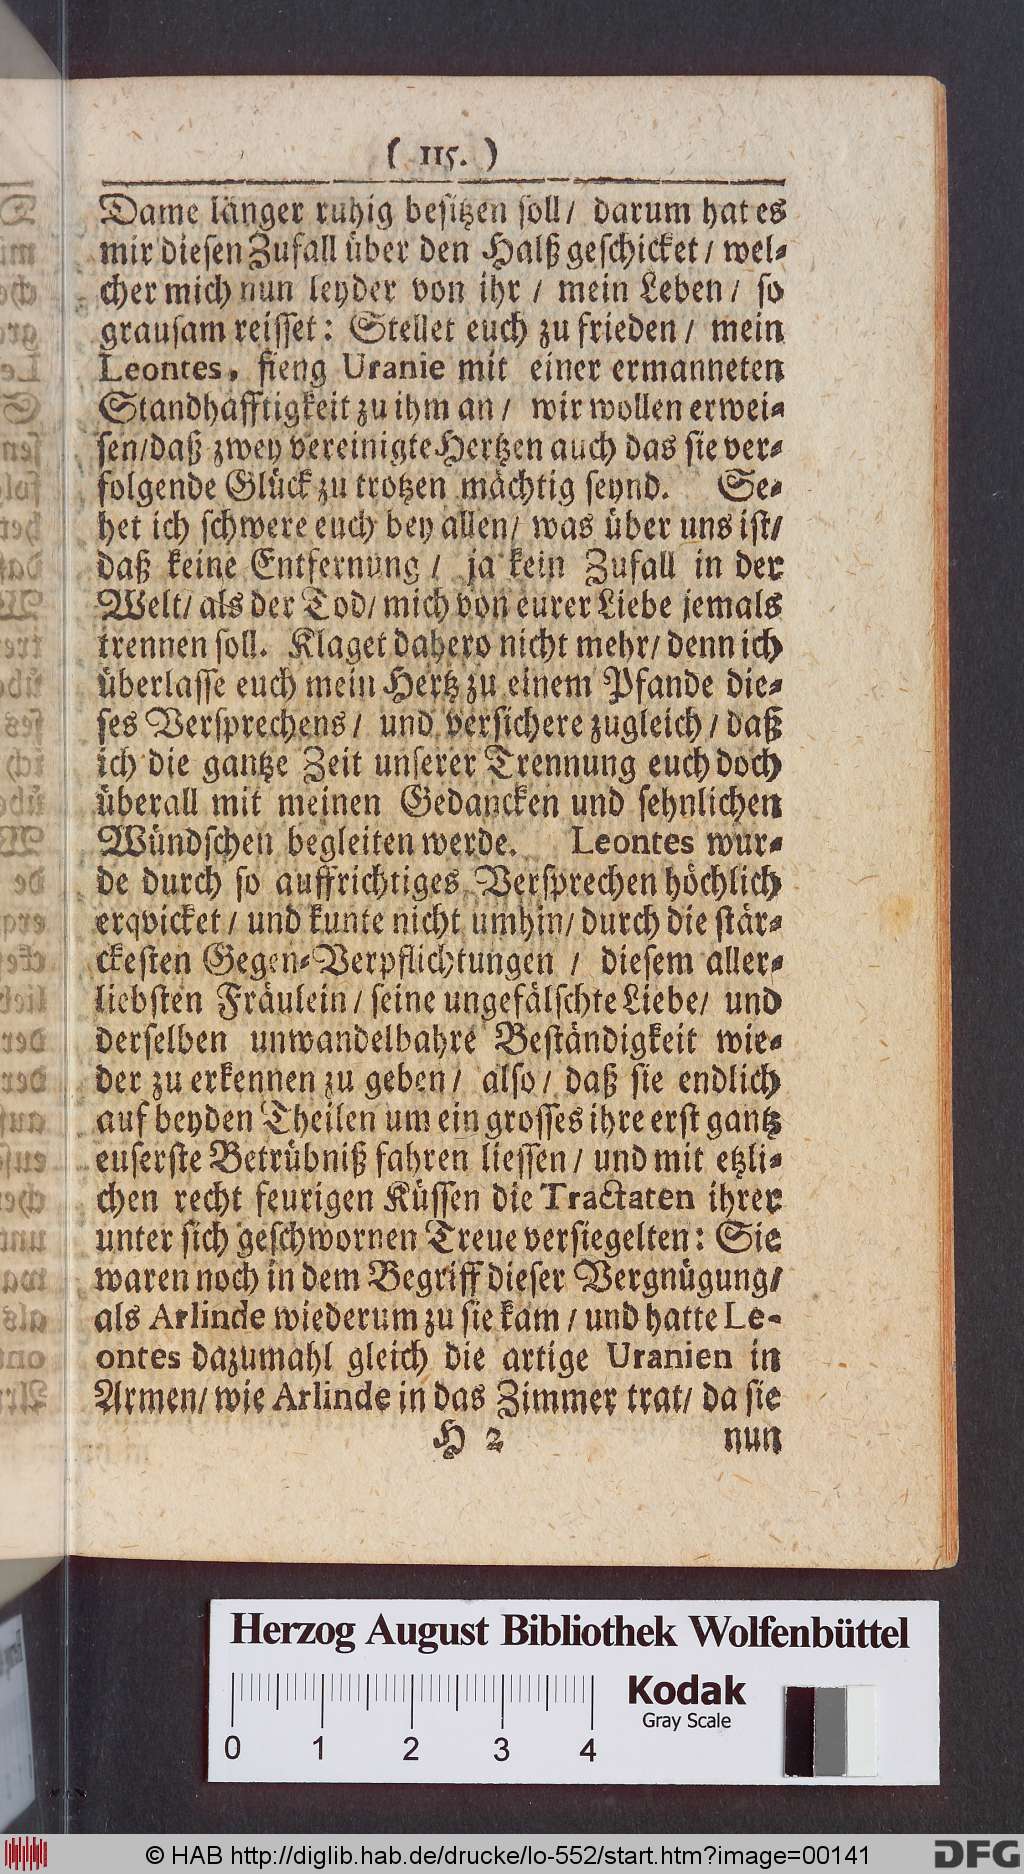 ( 115. )
Dame länger ruhig besitzen soll/ darum hat es
mir diesen Zufall über den Halß geschicket/ wel-
cher mich nun leyder von ihr / mein Leben/ so
grausam reisset: Stellet euch zu frieden/ mein
Leontes, fieng Uranie mit einer ermanneten
Standhafftigkeit zu ihm an/ wir wollen erwei-
sen/daß zwey vereinigte Hertzen auch das sie ver-
folgende Glück zu trotzen mächtig seynd. Se-
het ich schwere euch bey allen/ was über uns ist/
daß keine Entfernung/ ja kein Zufall in der
Welt/ als der Tod/ mich von eurer Liebe jemals
trennen soll. Klaget dahero nicht mehr/ denn ich
überlasse euch mein Hertz zu einem Pfande die-
ses Versprechens/ und versichere zugleich/ daß
ich die gantze Zeit unserer Trennung euch doch
überall mit meinen Gedancken und sehnlichen
Wündschen begleiten werde. Leontes wur-
de durch so auffrichtiges Versprechen höchlich
erqvicket/ und kunte nicht umhin/ durch die stär-
ckesten Gegen-Verpflichtungen / diesem aller-
liebsten Fräulein/ seine ungefälschte Liebe/ und
derselben unwandelbahre Beständigkeit wie-
der zu erkennen zu geben/ also/ daß sie endlich
auf beyden Theilen um ein grosses ihre erst gantz
euserste Betrübniß fahren liessen/ und mit etzli-
chen recht feurigen Küssen die Tractaten ihrer
unter sich geschwornen Treue versiegelten: Sie
waren noch in dem Begriff dieser Vergnügung/
als Arlinde wiederum zu sie kam/ und hatte Le-
ontes dazumahl gleich die artige Uranien in
Armen/ wie Arlinde in das Zimmer trat/ da sie
H 2 nun
Herzog August Bibliothek Wolfenbüttel
Kodak
Gray Scale
0 1 2 3 4
© HAB http://diglib.hab.de/drucke/lo-552/start.htm?image=00141
DFG